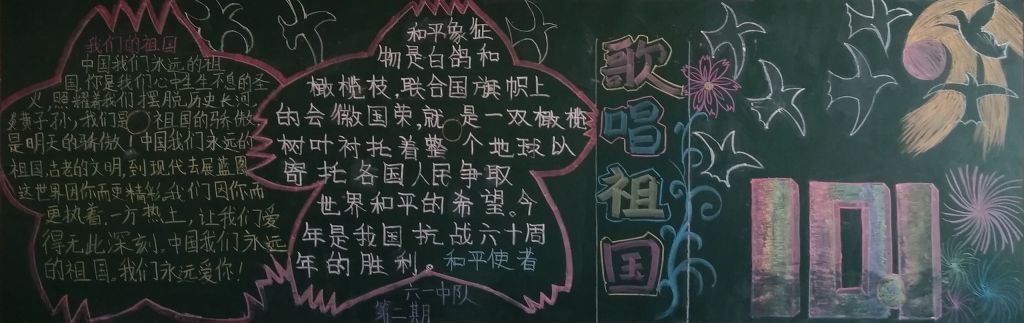 我们的祖国
中国我们永远的祖
国,你是我们心中生生不息的圣
火,照耀着我们摆脱历史长河,
子孙,我们是 祖国的骄傲
是明天的骄傲!中国我们永远的
祖国,古老的文明,到现代去展蓝图
这世界因你而更精彩,我们因你而
更执着一方热土,让我们爱
得无此深刻,中国我们永远
的祖国,我们永远爱你!
和平象征
物是白鸽和
橄榄枝.联合国旗帜上
的会徽国荣,就是一双橄榄
树叶衬托着整个地球以
寄托各国人民争取
世界和平的希望。今
年是我国抗战六十周
年的胜利。和平使者
六一中队
第二期
歌唱祖国
10.1